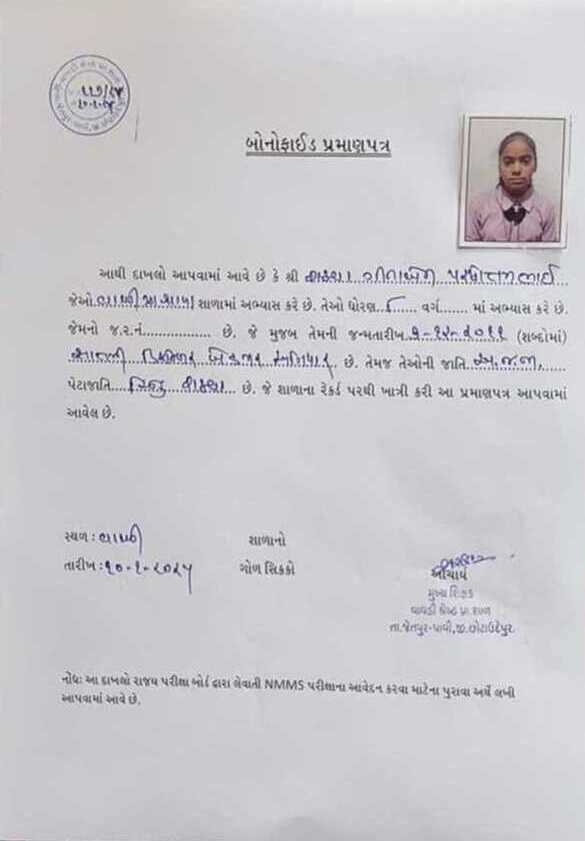 ૧૧૭/૨૫
બોનોફાઈડ પ્રમાણપત્ર
આથી દાખલો આપવામાં આવે છે કે શ્રી રાઠવા પરષોત્તમભાઈ
જેઓ શાળામાં અભ્યાસ કરે છે. તેઓ ધોરણ ૮ વર્ગ....... માં અભ્યાસ કરે છે.
જેમનો જ.ર.નં............... છે. જે મુજબ તેમની જન્મતારીખ ૭-૧૨-૨૦૧૧ (શબ્દોમાં)
સાતમી ડિસેમ્બર બે હજાર અગિયાર છે. તેમજ તેઓની જાતિ અ.જ.જા.
પેટાજાતિ હિન્દુ રાઠવા છે. જે શાળાના રેકર્ડ પરથી ખાત્રી કરી આ પ્રમાણપત્ર આપવામાં
આવેલ છે.
સ્થળ : વાવડી
શાળાનો
તારીખ : ૧૦-૧-૨૦૨૫
ગોળ સિક્કો
આચાર્ય
મુખ્ય શિક્ષક
વાવડી કેન્દ્ર પ્રા.શાળા
તા.જેતપુર-પાવી,જી.છોટાઉદેપુર
નોંધઃ આ દાખલો રાજ્ય પરીક્ષા બોર્ડ દ્વારા લેવાતી NMMS પરીક્ષાના આવેદન કરવા માટેના પુરાવા અર્થે લખી
આપવામાં આવે છે.